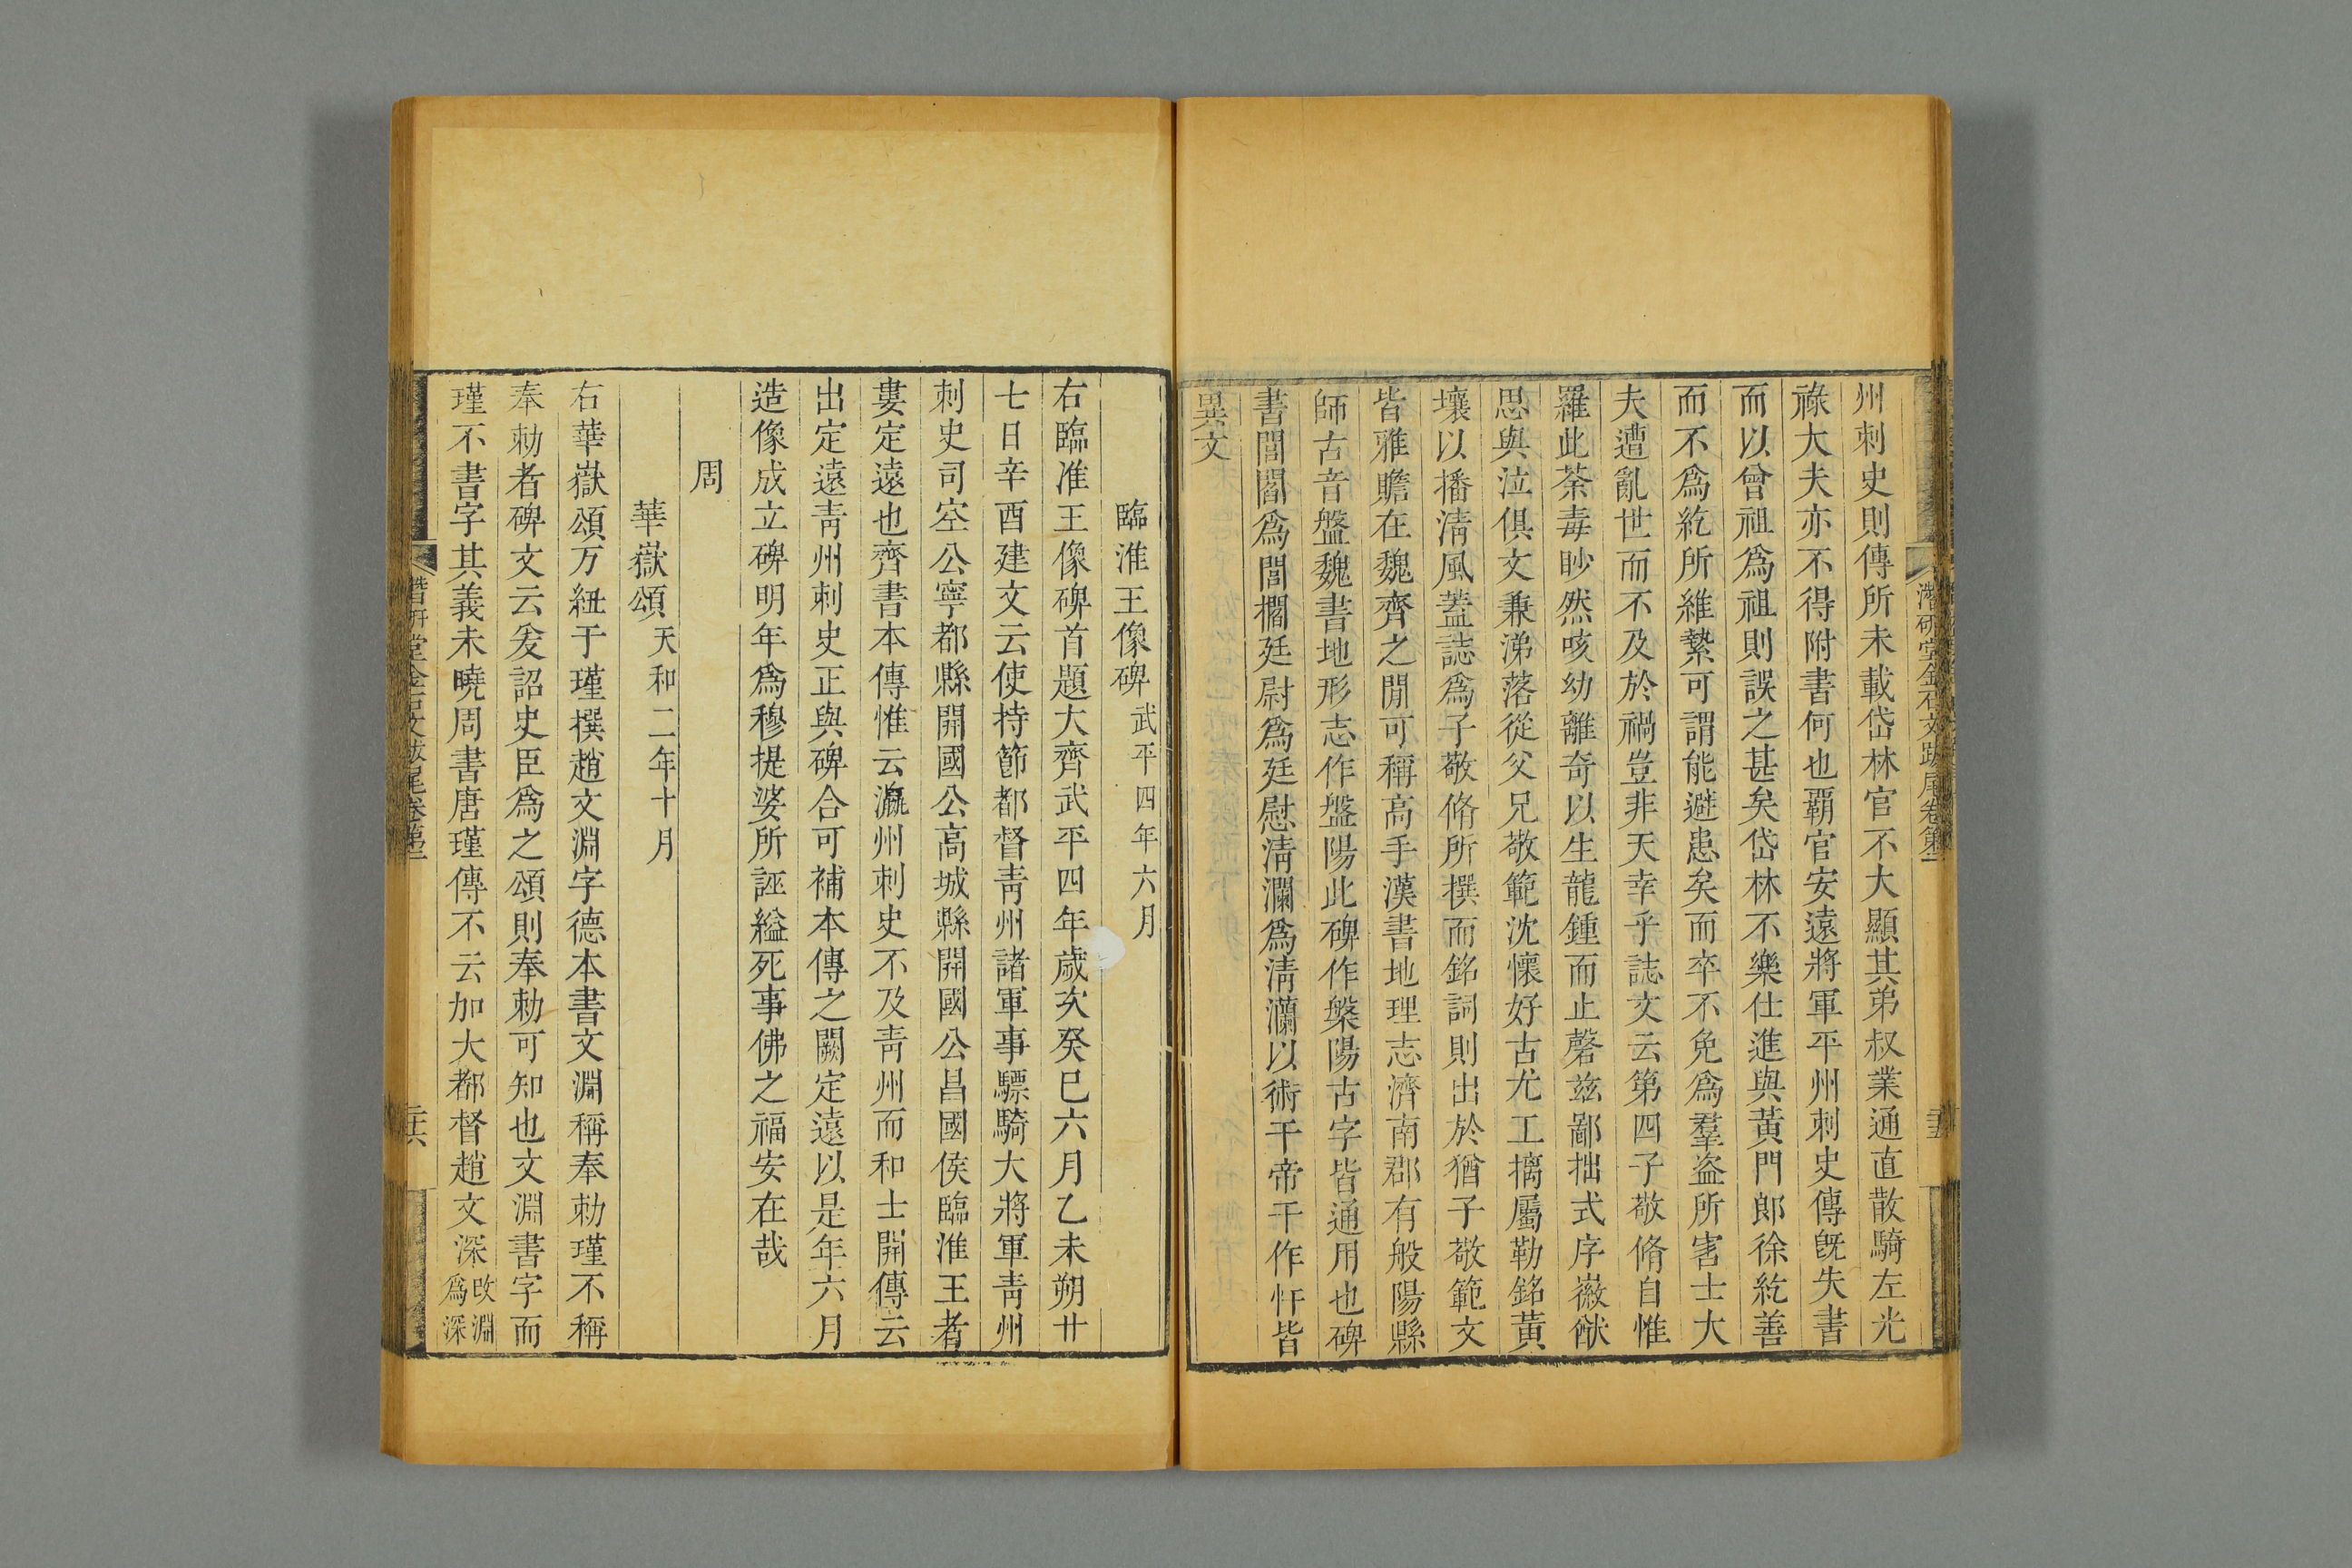 潛研堂金石文跋尾卷第三
州刺史則傳所未載岱林官不大顯其弟叔業通直散騎左光
祿大夫亦不得附書何也覇官安遠將軍平州刺史傳旣失書
而以曾祖爲祖則誤之甚矣岱林不樂仕進與黃門郎徐紇善
而不爲紇所維縶可謂能避患矣而卒不免爲羣盗所害士大
夫遭亂世而不及於禍豈非天幸乎誌文云第四子敬脩自惟
羅此荼毒眇然咳幼離奇以生龍鍾而止磬兹鄙拙式序徽猷
思與泣俱文兼涕落從父兄敬範沈懷好古尤工摛屬勒銘黃
壤以播淸風蓋誌爲子敬脩所撰而銘詞則出於猶子敬範文
皆雅贍在魏齊之閒可稱高手漢書地理志濟南郡有般陽縣
師古音盤魏書地形志作盤陽此碑作槃陽古字皆通用也碑
書誾閣爲誾擱廷尉爲廷慰淸瀾爲淸灡以術干帝干作忓皆
異文
臨淮王像碑 武平四年六月
右臨准王像碑首題大齊武平四年歲次癸巳六月乙未朔廿
七日辛酉建文云使持節都督靑州諸軍事驃騎大將軍靑州
刺史司空公寧都縣開國公高城縣開國公昌國侯臨淮王者
婁定遠也齊書本傳惟云瀛州刺史不及靑州而和士開傳云
出定遠靑州刺史正與碑合可補本傳之闕定遠以是年六月
造像成立碑明年爲穆提婆所誣縊死事佛之福安在哉
周
華嶽頌 天和二年十月
右華嶽頌万紐于瑾撰趙文淵字德本書文淵稱奉勅瑾不稱
奉勅者碑文云爰詔史臣爲之頌則奉勅可知也文淵書字而
瑾不書字其義未曉周書唐瑾傳不云加大都督趙文深改淵爲深
潛研堂金石文跋尾卷第三